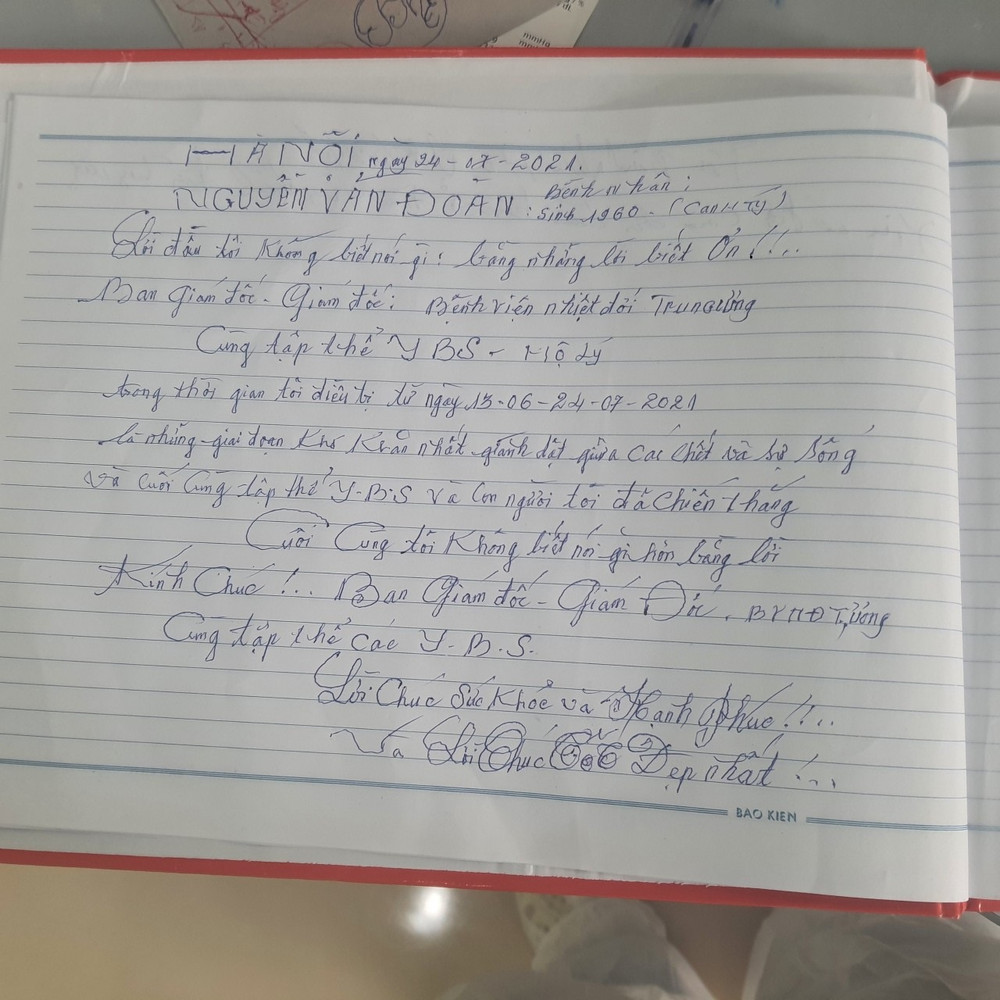 HÀ NỖI ngày 24-07-2021.
NGUYỄN VĂN ĐOÀN : Bệnh nhân :
Sinh 1960 - (Canh Tý)
Lời đầu tôi không biết nói gì : bằng nhằng lời biết Ơn !!...
Ban Giám đốc - Giám đốc : Bệnh viện nhiệt đới Trung ương
Cùng tập thể Y BS - Hộ Lý
trong thời gian tôi điều tị từ ngày 13-06-24-07-2021
là những giai đoạn khó khăn nhất giành dật giữa các chết và sự sống
và cuối cùng tập thể Y-B.S và con người tôi đã chiến thắng
Cuối Cùng tôi không biết nói gì hơn bằng lời
Kính Chúc !... Ban Giám đốc - Giám Đốc . BVNĐ T,ương
Cùng tập thể các Y-B.S.
Lời Chúc Sức Khỏe và Hạnh Phúc !!...
Và Lời Chúc Tốt Đẹp nhất !...
BAO KIEN
mmHg